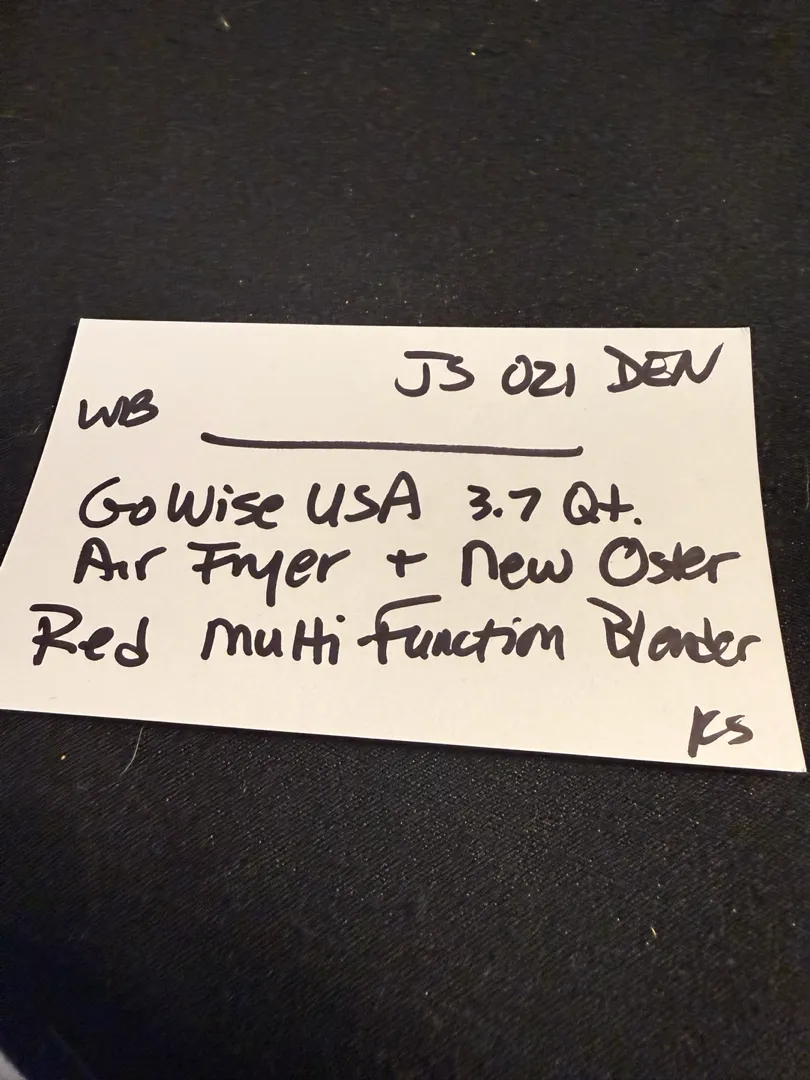 JS 021 DEN
WB
GoWise USA 3.7 Qt.
Air Fryer + New Oster
Red Multi Function Blender
KS